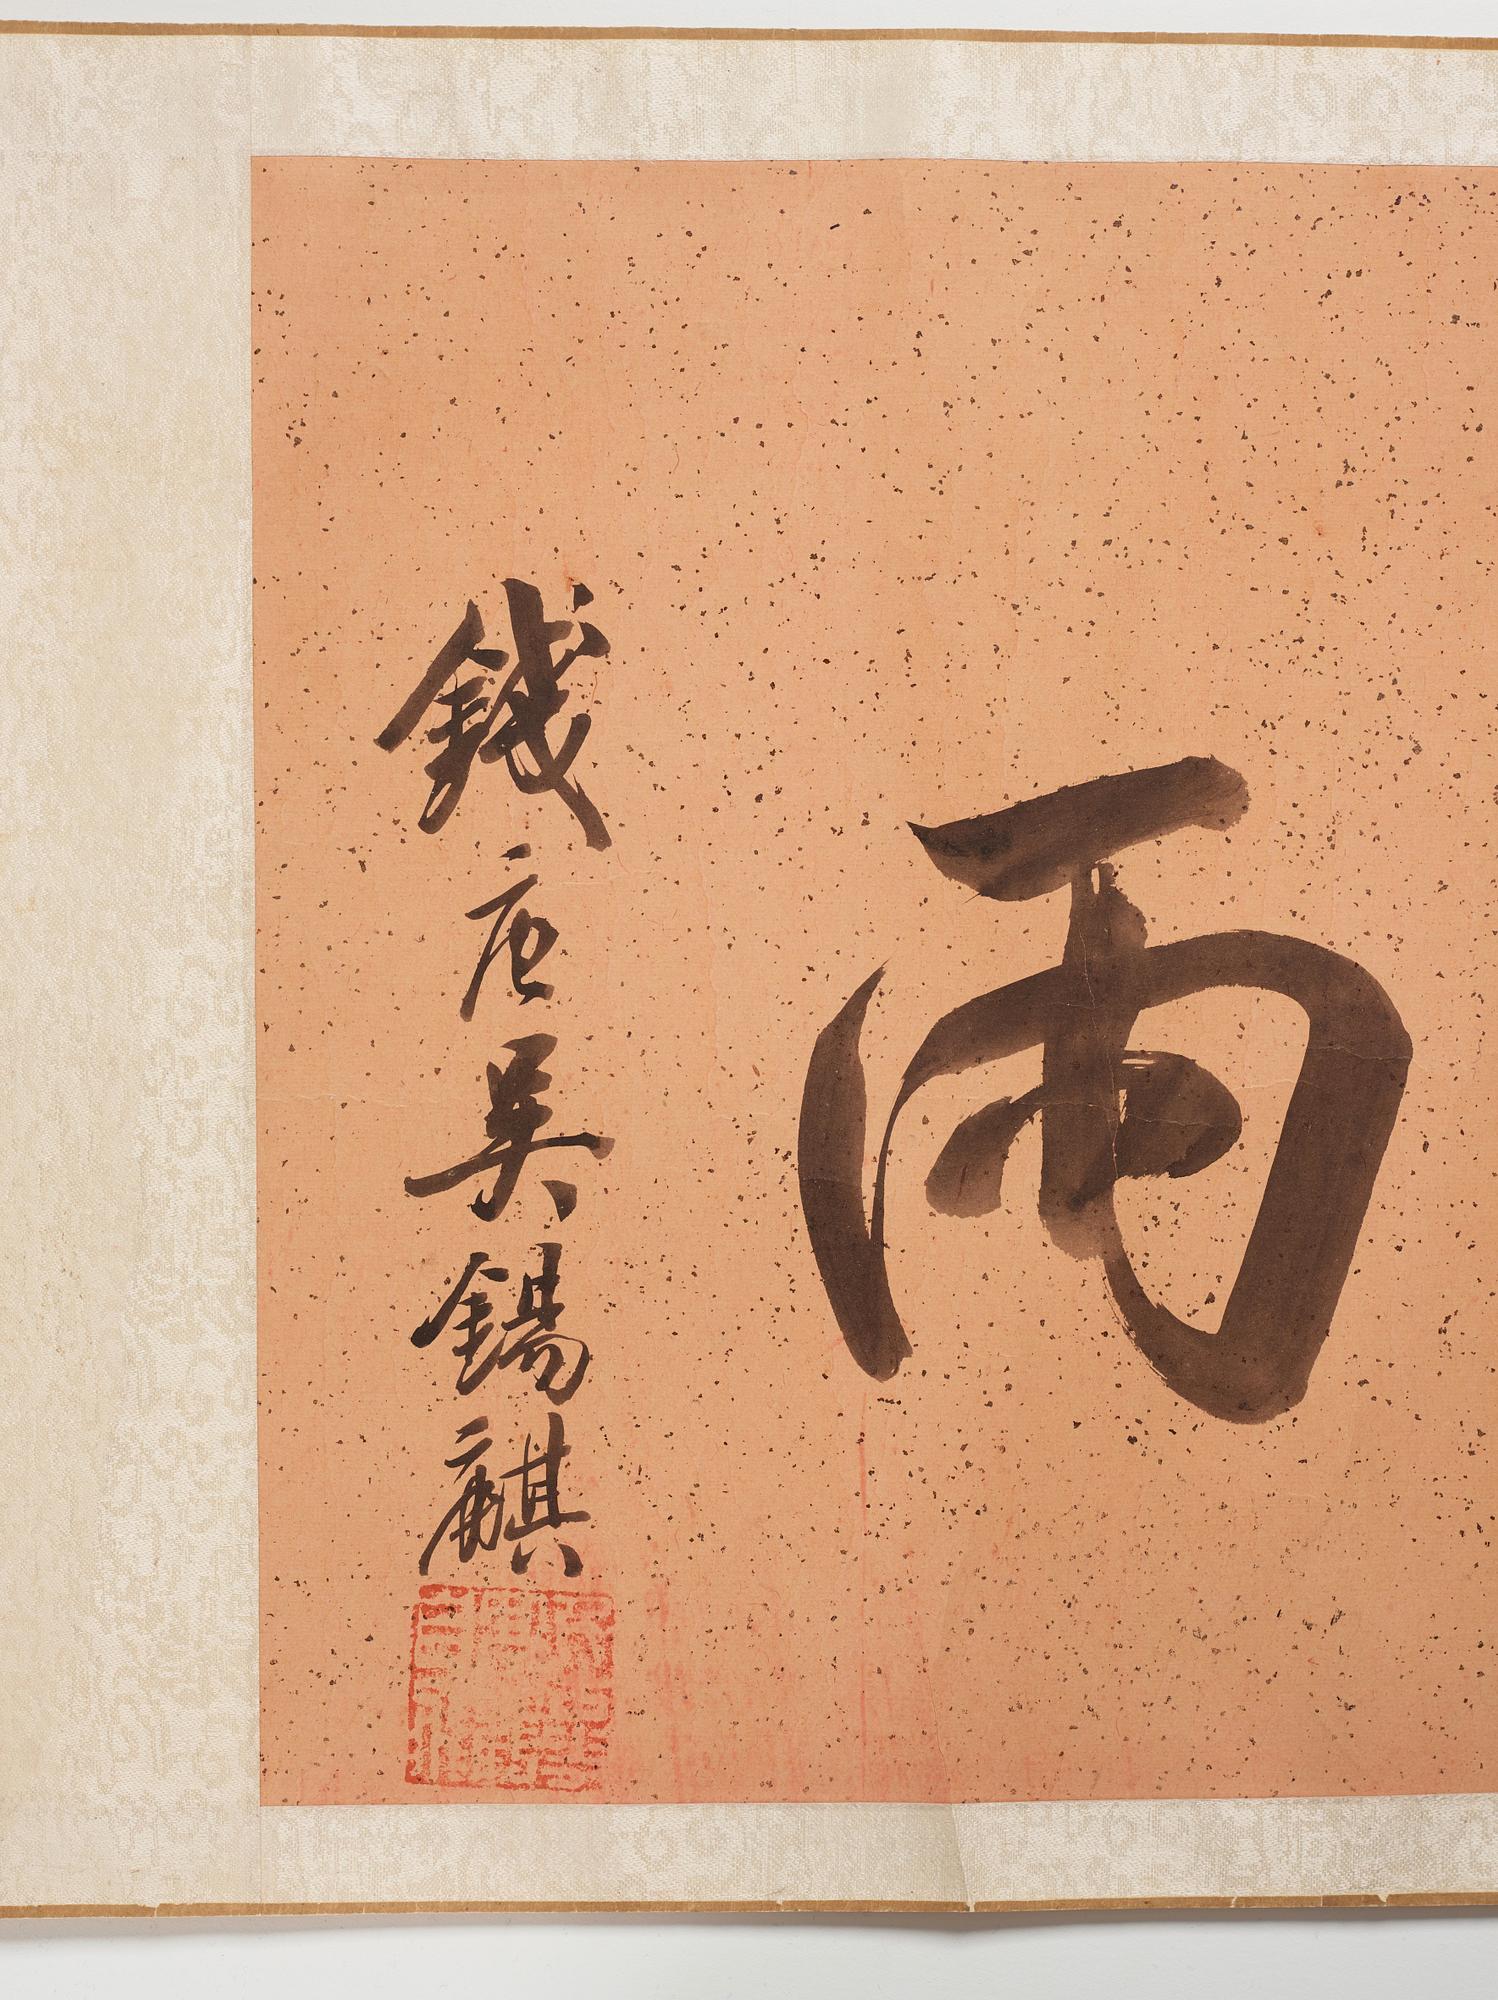 雨
錢唐吳錫麒